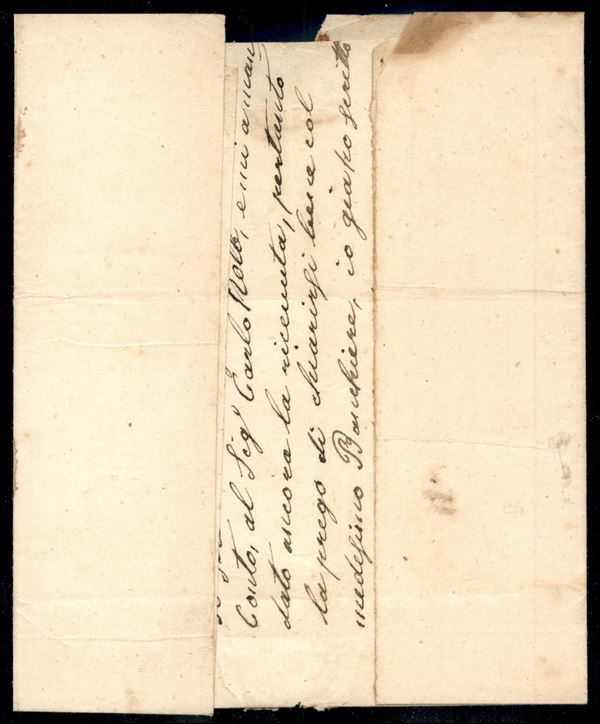 Conto, al Sigr Carlo, e mi a man
dato ancora la riceuuta, pertanto
la prego di chiarirsi bene col
medesimo Banchiere, io gia ho scritto